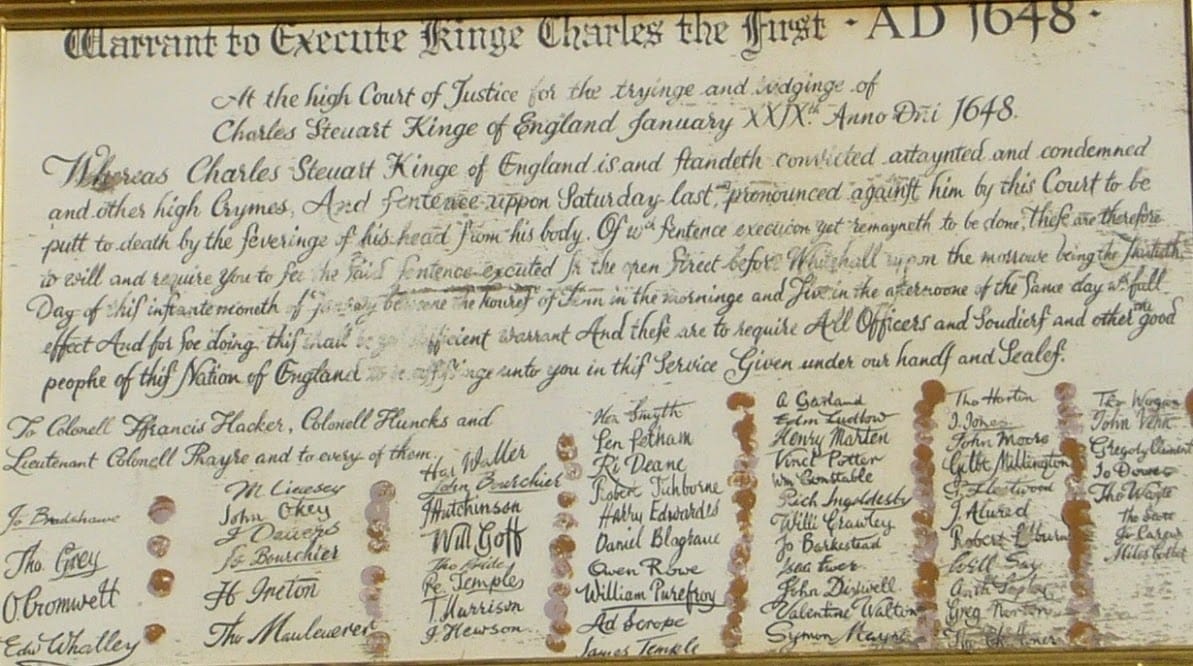 Warrant to Execute Kinge Charles the First · AD 1648 ·
At the high Court of Justice for the tryinge and iudginge of
Charles Steuart Kinge of England January XXIXth Anno Dñi 1648.
Whereas Charles Steuart Kinge of England is and standeth convicted attaynted and condemned
and other high Crymes, And sentence uppon Saturday last pronounced against him by this Court to be
putt to death by the severinge of his head from his body. Of wch sentence execucon yet remayneth to be done, These are therefore
to will and require you to see the said sentence excuted In the open Street before Whitehall uppon the morrowe being the Thirtieth
Day of this instante moneth of January betweene the houres of Tenn in the morninge and Five in the afternoone of the same day wth full
effect And for soe doing this shall be sufficient warrant And these are to require All Officers and Soudiers and other the good
peophe of this Nation of England to be assistinge unto you in this Service Given under our hands and Seales.
To Colonell Ffrancis Hacker, Colonell Huncks and
Lieutenant Colonell Phayre and to every of them.
Jo Bradshawe
Tho. Grey
O. Cromwell
Edw Whalley
M. Livesey
John Okey
J Davers
Jo Bourchier
H Ireton
Tho Mauleverer
Har Waller
John Bourchier
J Hutchinson
Will Goff
Tho Pride
Pe Temples
T Harrison
J Hewson
Hen Smyth
Pen Petham
Ri Deane
Robert Tichborne
Harry Edwardes
Daniel Blagrave
Owen Rowe
William Purefroy
Ad Scrope
James Temple
A Garland
Edm Ludlow
Henry Marten
Vinct Potter
Wm Constable
Rich Ingoldesby
Willi Crawley
Jo Barkestead
Isaa Ewer
John Dixwell
Valentine Walton
Symon Mayne
Tho Horton
J. Jones
John Moore
Gilbt Millington
G Fleetwood
J Alured
Robert Lilburn
Will Say
Greg Norton
Tho Challoner
Tho Wogan
John Venn
Gregory Clement
Jo Downes
Tho Wayte
Tho Scot
Jo Carew
Miles Corbet